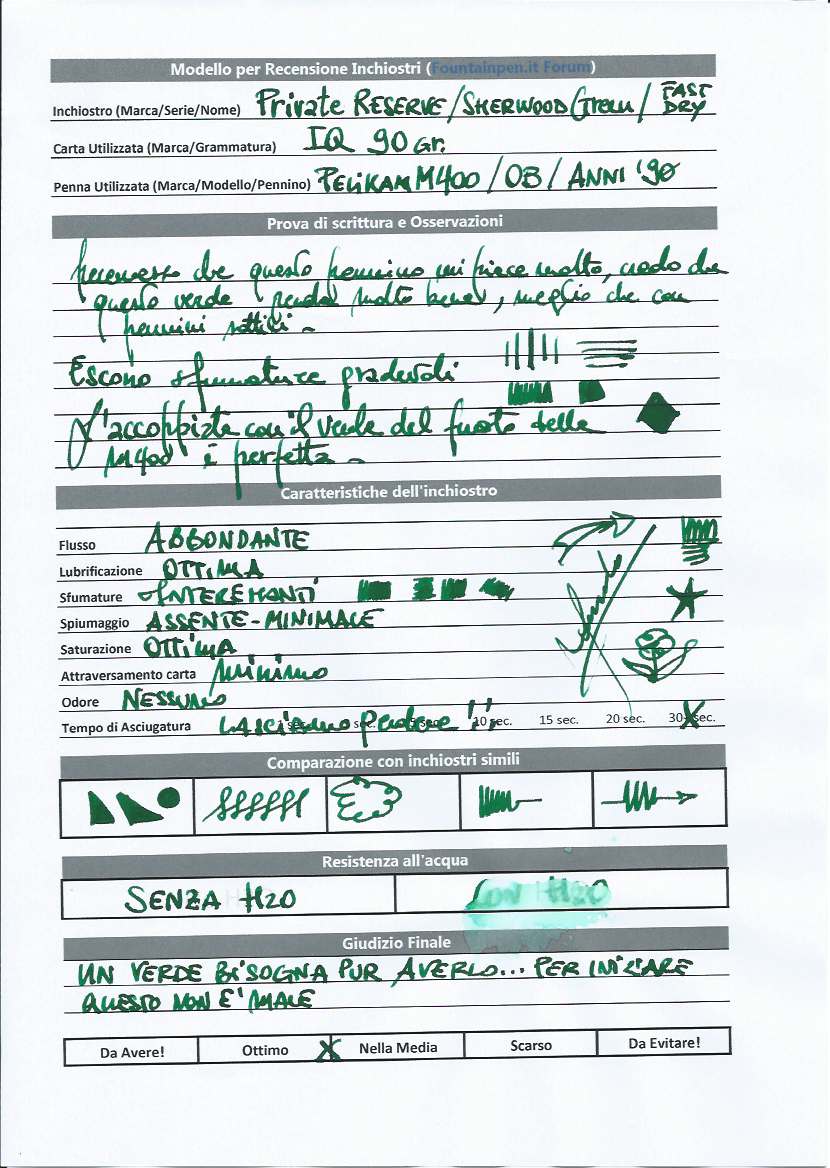 Modello per Recensione Inchiostri (Fountainpen.it Forum)
Inchiostro (Marca/Serie/Nome) Private RESERVE/SHERWOOD Green/ FAST DRY
Carta Utilizzata (Marca/Grammatura) IQ 90 Gr.
Penna Utilizzata (Marca/Modello/Pennino) PELIKAN M400 / OB / ANNI '90
Prova di scrittura e Osservazioni
Premesso che questo pennino mi piace molto, credo che
questo verde renda molto bene, meglio che con
pennini sottili.
Escono sfumature gradevoli
L'accoppiata con il verde del fusto della
M400 è perfetta.
Caratteristiche dell'inchiostro
Flusso ABBONDANTE
Lubrificazione OTTIMA
Sfumature INTERESSANTI
Spiumaggio ASSENTE-MINIMALE
Saturazione OTTIMA
Attraversamento carta Minimo
Odore NESSUNO
Tempo di Asciugatura LASCIAMO perdere!! 10 sec. 15 sec. 20 sec. 30+ sec.
Comparazione con inchiostri simili
Resistenza all'acqua
SENZA H2O CON H2O
Giudizio Finale
UN VERDE BISOGNA PUR AVERLO... PER INIZIARE
QUESTO NON E' MALE
Da Avere! Ottimo X Nella Media Scarso Da Evitare!